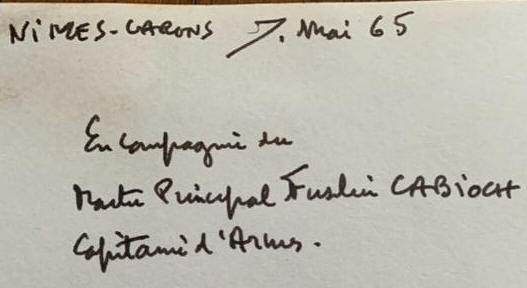 NÎMES-GARONS 7. Mai 65
En Compagnie du
Maître Principal Fusilier CABIOCH
Capitaine d'Armes.